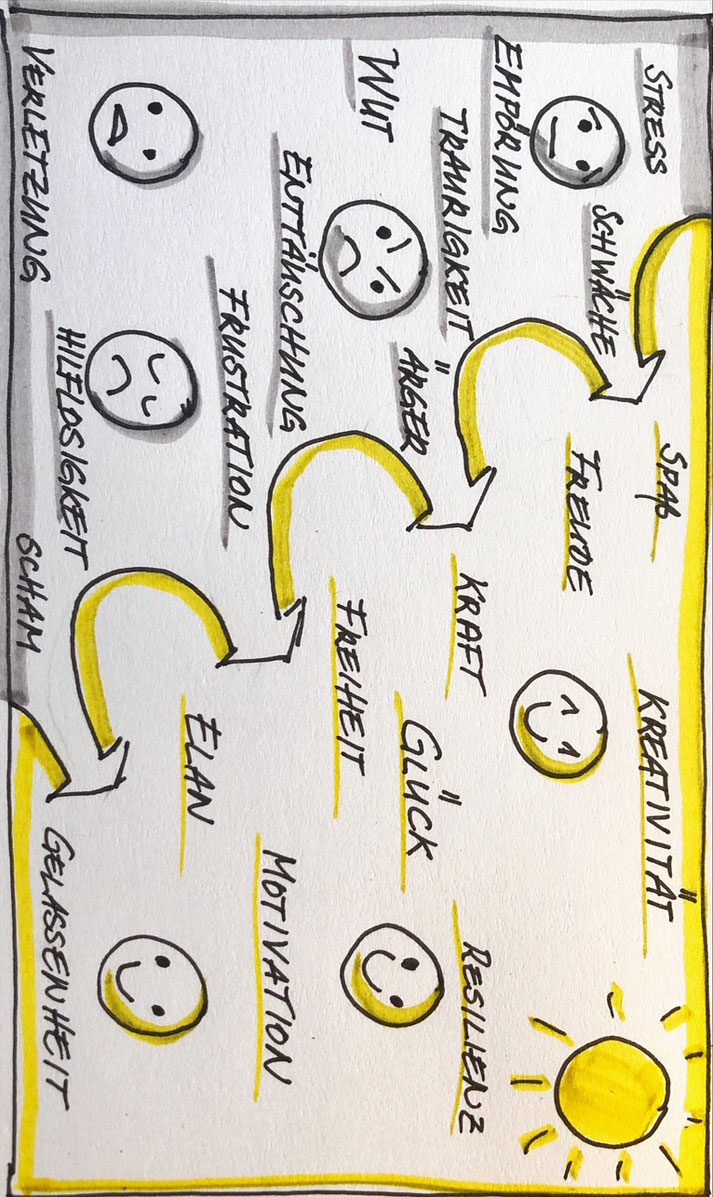 STRESS
SPAß
KREATIVITÄT
SCHWÄCHE
FREUDE
EMPÖRUNG
TRAURIGKEIT
KRAFT
RESILIENZ
WUT
ÄRGER
GLÜCK
ENTTÄUSCHUNG
FREIHEIT
FRUSTRATION
MOTIVATION
ELAN
VERLETZUNG
HILFLOSIGKEIT
SCHAM
GELASSENHEIT